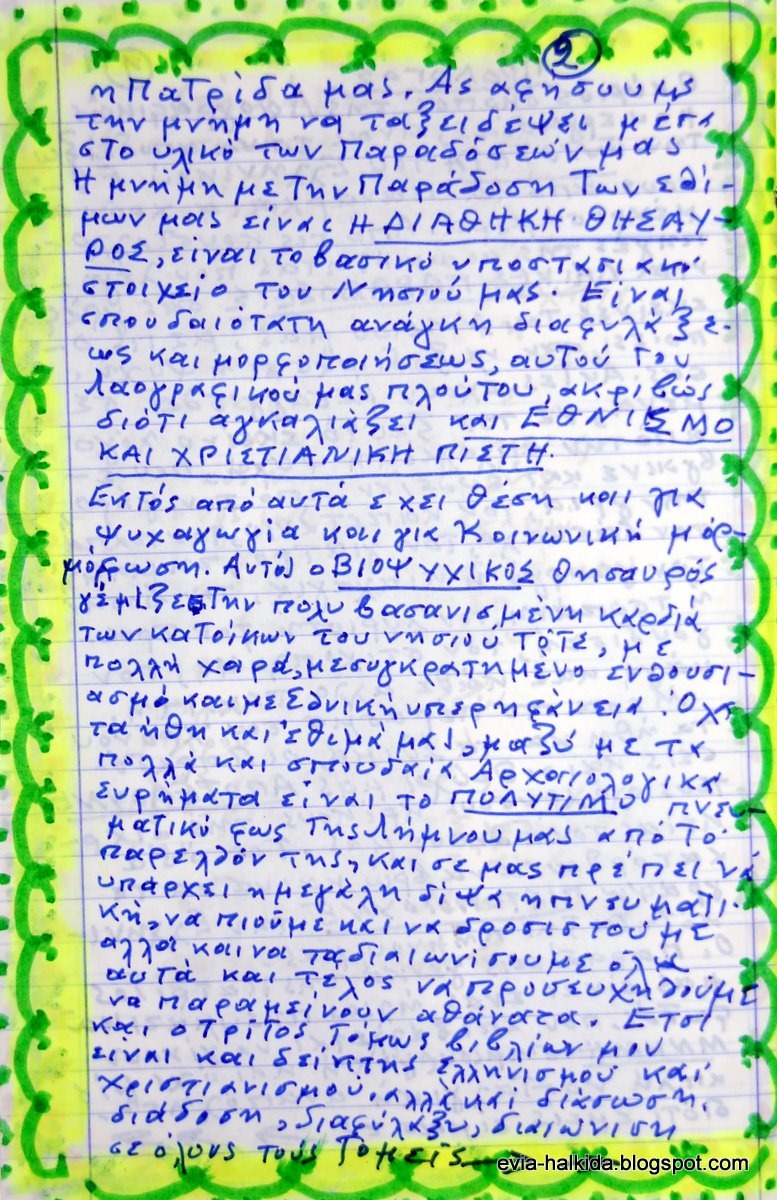 2
η Πατρίδα μας. Ας αφήσουμε
την μνήμη να ταξειδέψει μέσα
στο υλικό των Παραδόσεών μας
Η μνήμη με την Παράδοση των εθί-
μων μας είναι Η ΔΙΑΘΗΚΗ ΘΗΣΑΥ-
ΡΟΣ, είναι το βασικό υποστασιακό
στοιχείο του Νησιού μας. Είναι
σπουδαιότατη ανάγκη διαφυλάξε-
ως και μορφοποιήσεως, αυτού του
Λαογραφικού μας πλούτου, ακριβώς
διότι αγκαλιάζει και ΕΘΝΙΣΜΟ
ΚΑΙ ΧΡΙΣΤΙΑΝΙΚΗ ΠΙΣΤΗ.
Εκτός από αυτά έχει θέση και για
ψυχαγωγία και για Κοινωνική μόρ-
μόρφωση. Αυτός ο ΒΙΟΨΥΧΙΚΟΣ θησαυρός
γέμιζε την πολυβασανισμένη καρδιά
των κατοίκων του νησιού τότε, με
πολλή χαρά, με συγκρατημένο ενθουσι-
ασμό και με Εθνική υπερηφάνεια.
τα ήθη και έθιμά μας, μαζύ με τα
πολλά και σπουδαία Αρχαιολογικά
ευρήματα είναι το ΠΟΛΥΤΙΜΟ πνευ-
ματικό φως της Λήμνου μας από το
παρελθόν της, και σε μας πρέπει να
υπάρχει η μεγάλη δίψα η πνευματι-
κή, να πιούμε και να δροσιστούμε
αλλά και να τα διαιωνίσουμε όλα
αυτά και τέλος να προσευχηθούμε
να παραμείνουν αθάνατα. Έτσι
και ο Τρίτος Τόμος βιβλίων μου
είναι και δείκτης Ελληνισμού και
Χριστιανισμού, αλλά και διάσωση,
διάδοση, διαφύλαξη, διαιώνιση
σε όλους τους Τομείς
evia-halkida.blogspot.com